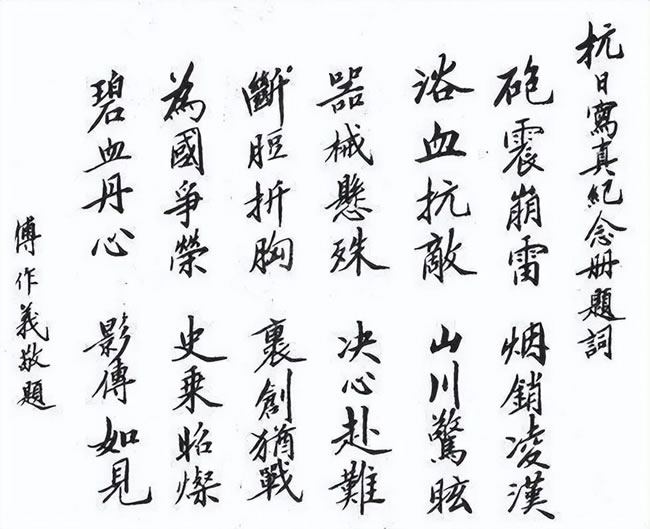 抗日寫真紀念册題詞
砲震崩雷 烟銷凌漢
浴血抗敵 山川驚眩
器械懸殊 决心赴難
斷脰折胸 裹創猶戰
為國爭榮 史乗昭燦
碧血丹心 影傳如見
傅作義敬題